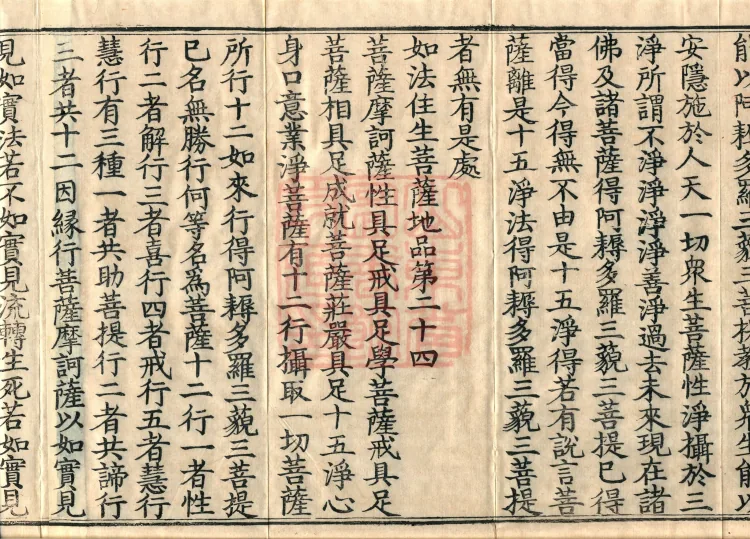 能以阿耨多羅三藐三菩提
安隱施於人天一切衆生菩薩性淨攝於三
淨所謂不淨淨淨善淨過去未來現在諸
佛及諸菩薩得阿耨多羅三藐三菩提已得
當得今得無不由是十五淨得若有說言菩
薩離是十五淨法得阿耨多羅三藐三菩提
者無有是處
如法住生菩薩地品第二十四
菩薩摩訶薩性具足戒具足學菩薩戒具足
菩薩相具足成就菩薩莊嚴具足十五淨心
身口意業淨菩薩有十二行攝取一切菩薩
所行十二如來行得阿耨多羅三藐三菩提
已名無勝行何等名爲菩薩十二行一者性
行二者解行三者喜行四者戒行五者慧行
慧行有三種一者共助菩提行二者共諦行
三者共十二因緣行菩薩摩訶薩以如實見
見如實法若不如實見流轉生死若如實見